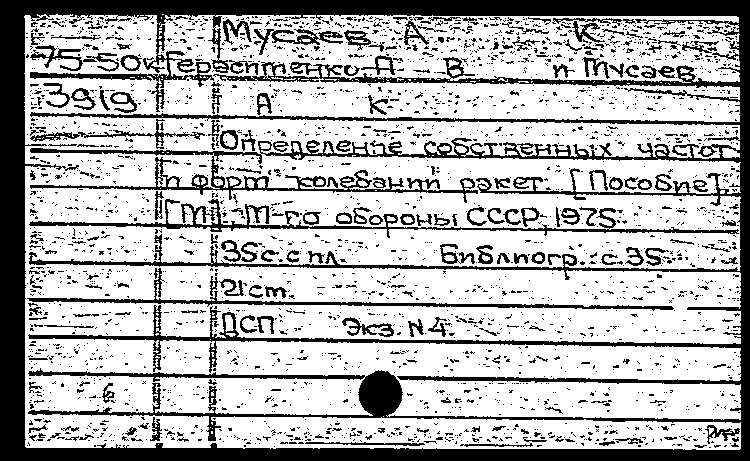 Мусаев, А. К
75-50к Герасименко А В и Мусаев,
3919 А К
Определение собственных частот
и форм колебаний ракет. [Пособие].
[М.], М-во обороны СССР, 1975.
35 с. с ил. Библиогр.: с. 35
21 см.
ДСП. Экз. N 4.
6